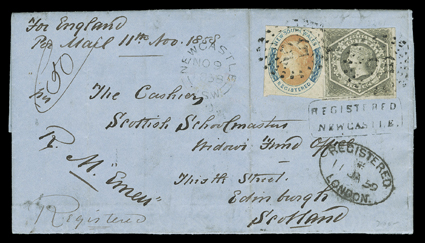 For England
Per Mail 11th Nov. 1858
NEWCASTLE
NO 9
1858
REGISTERED
The Cashier
Scottish Schoolmasters
Widows Fund Office
Thistle Street
Edinburgh
Scotland
REGISTERED
NEWCASTLE.
REGISTERED
11 JA 59
LONDON
Registered